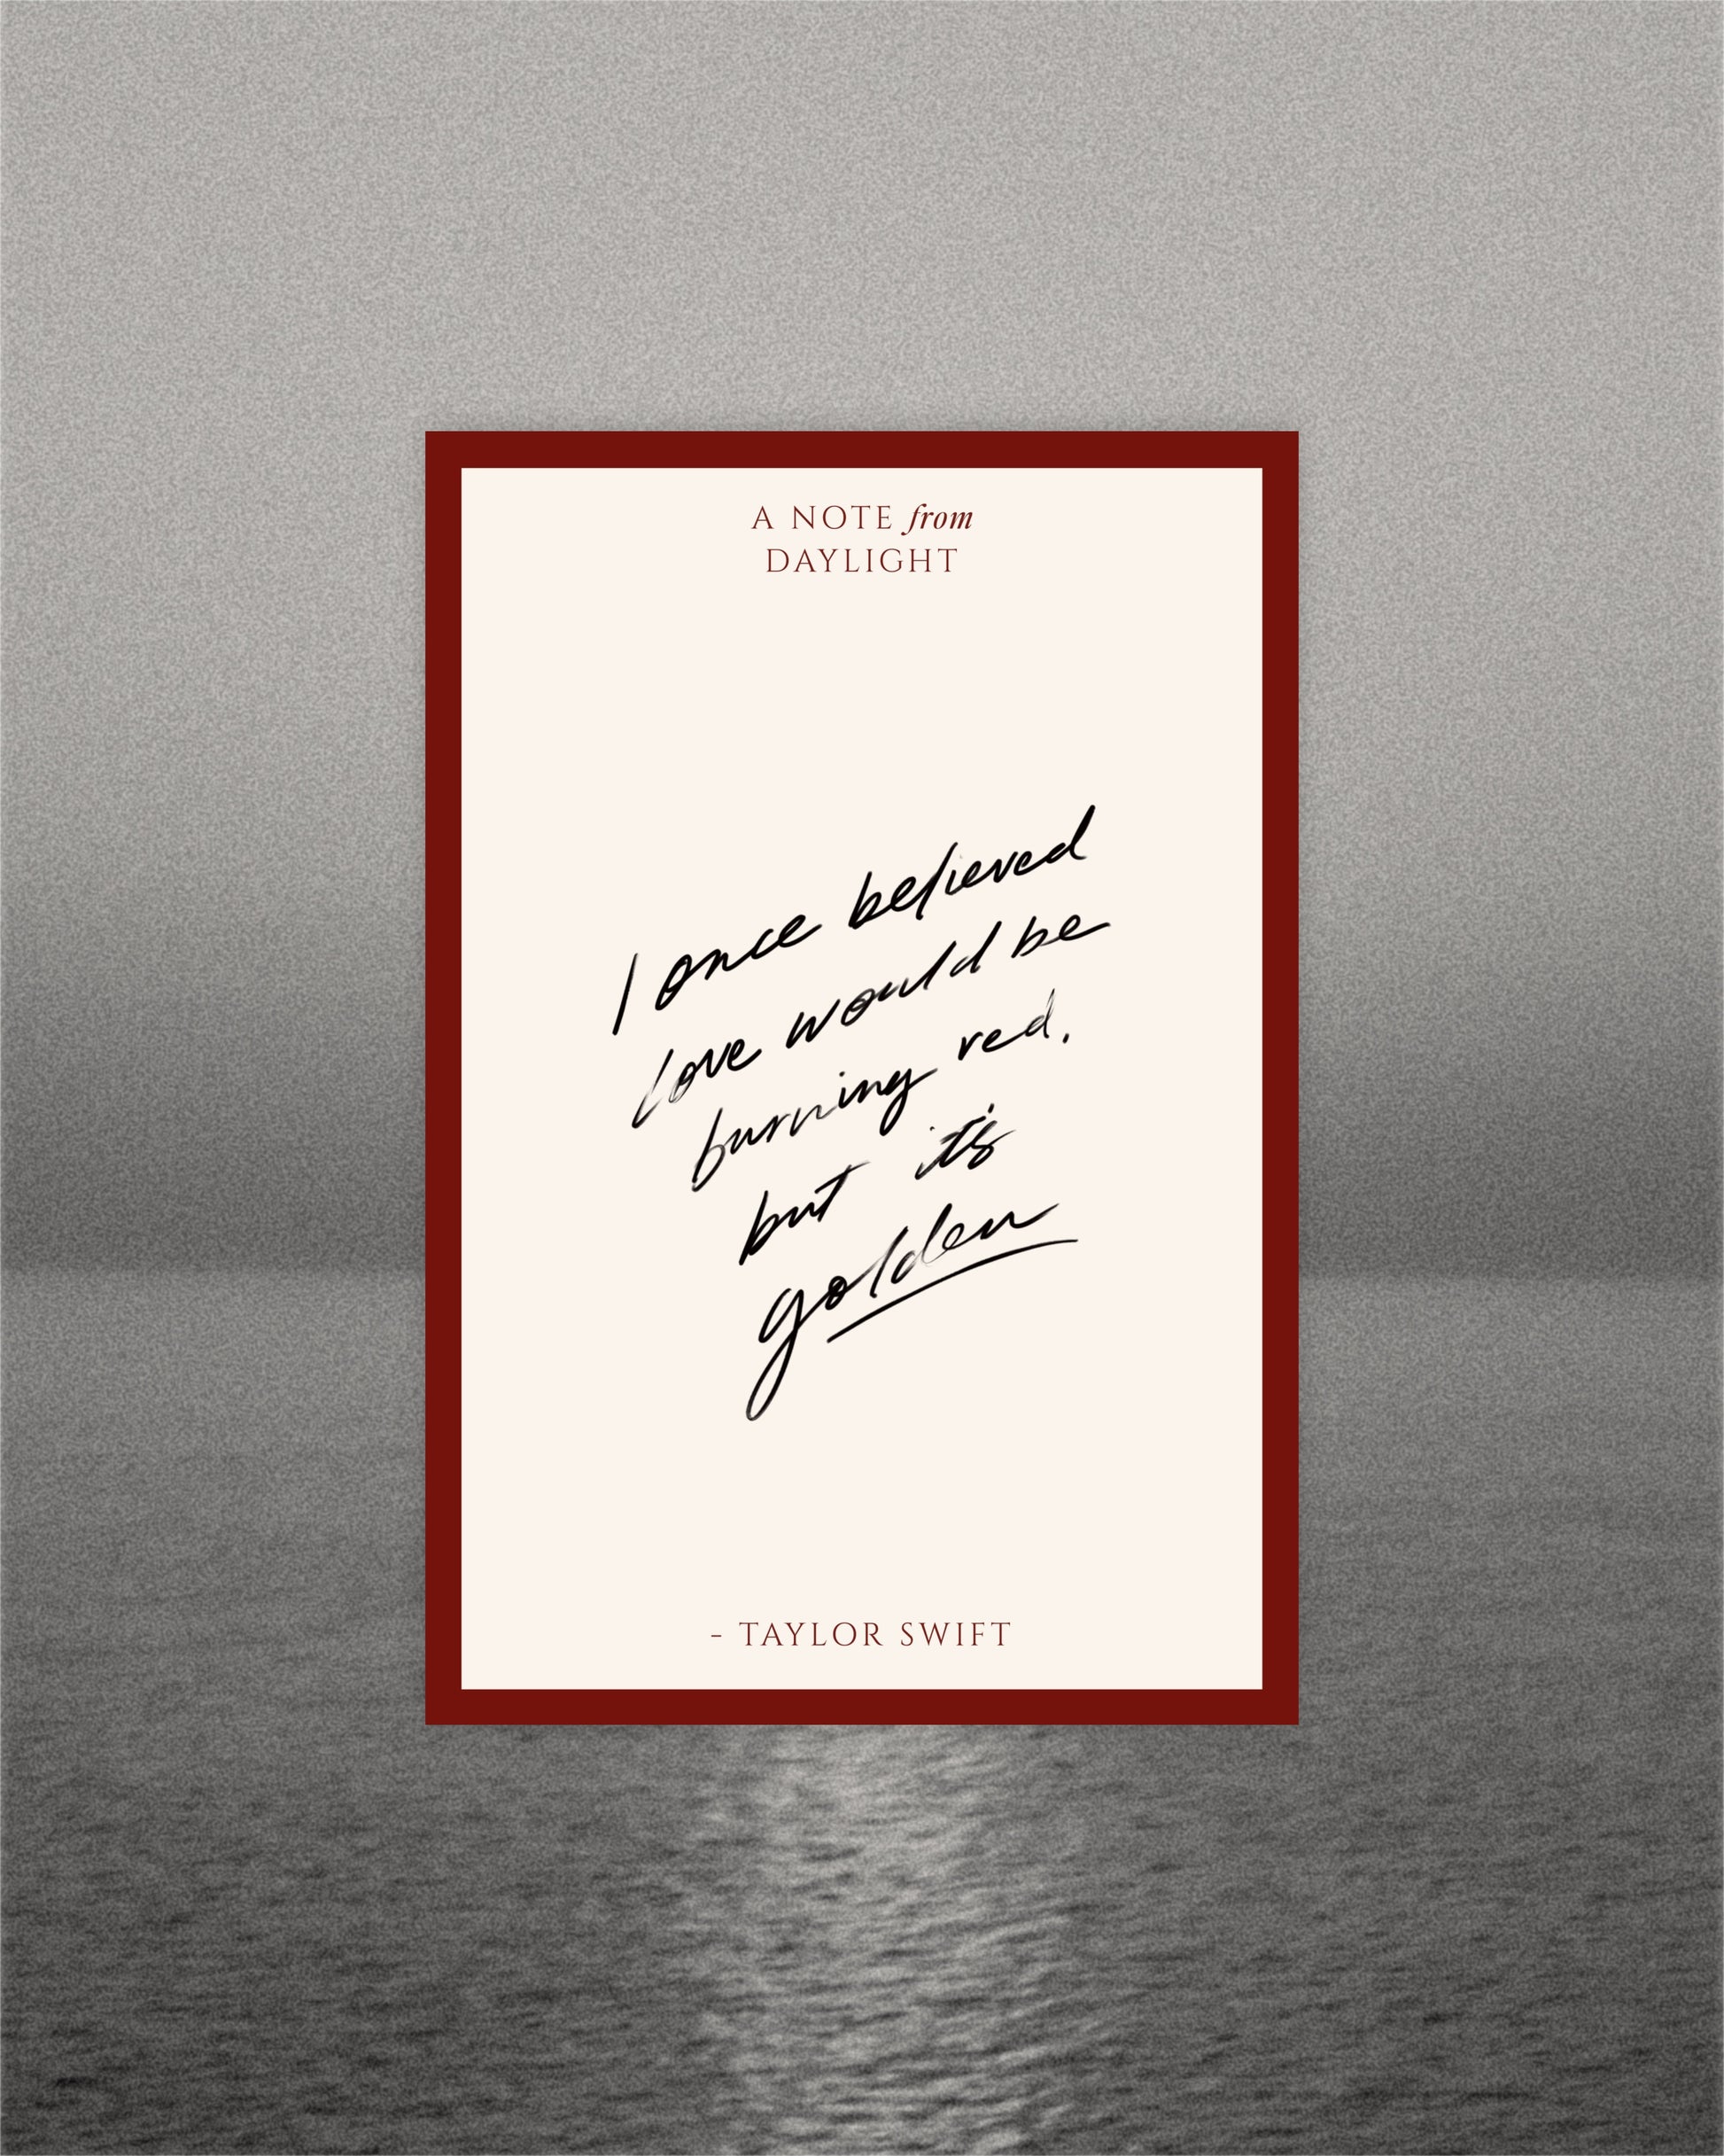 A NOTE from
DAYLIGHT
I once believed
love would be
burning red.
but it's
golden
- TAYLOR SWIFT